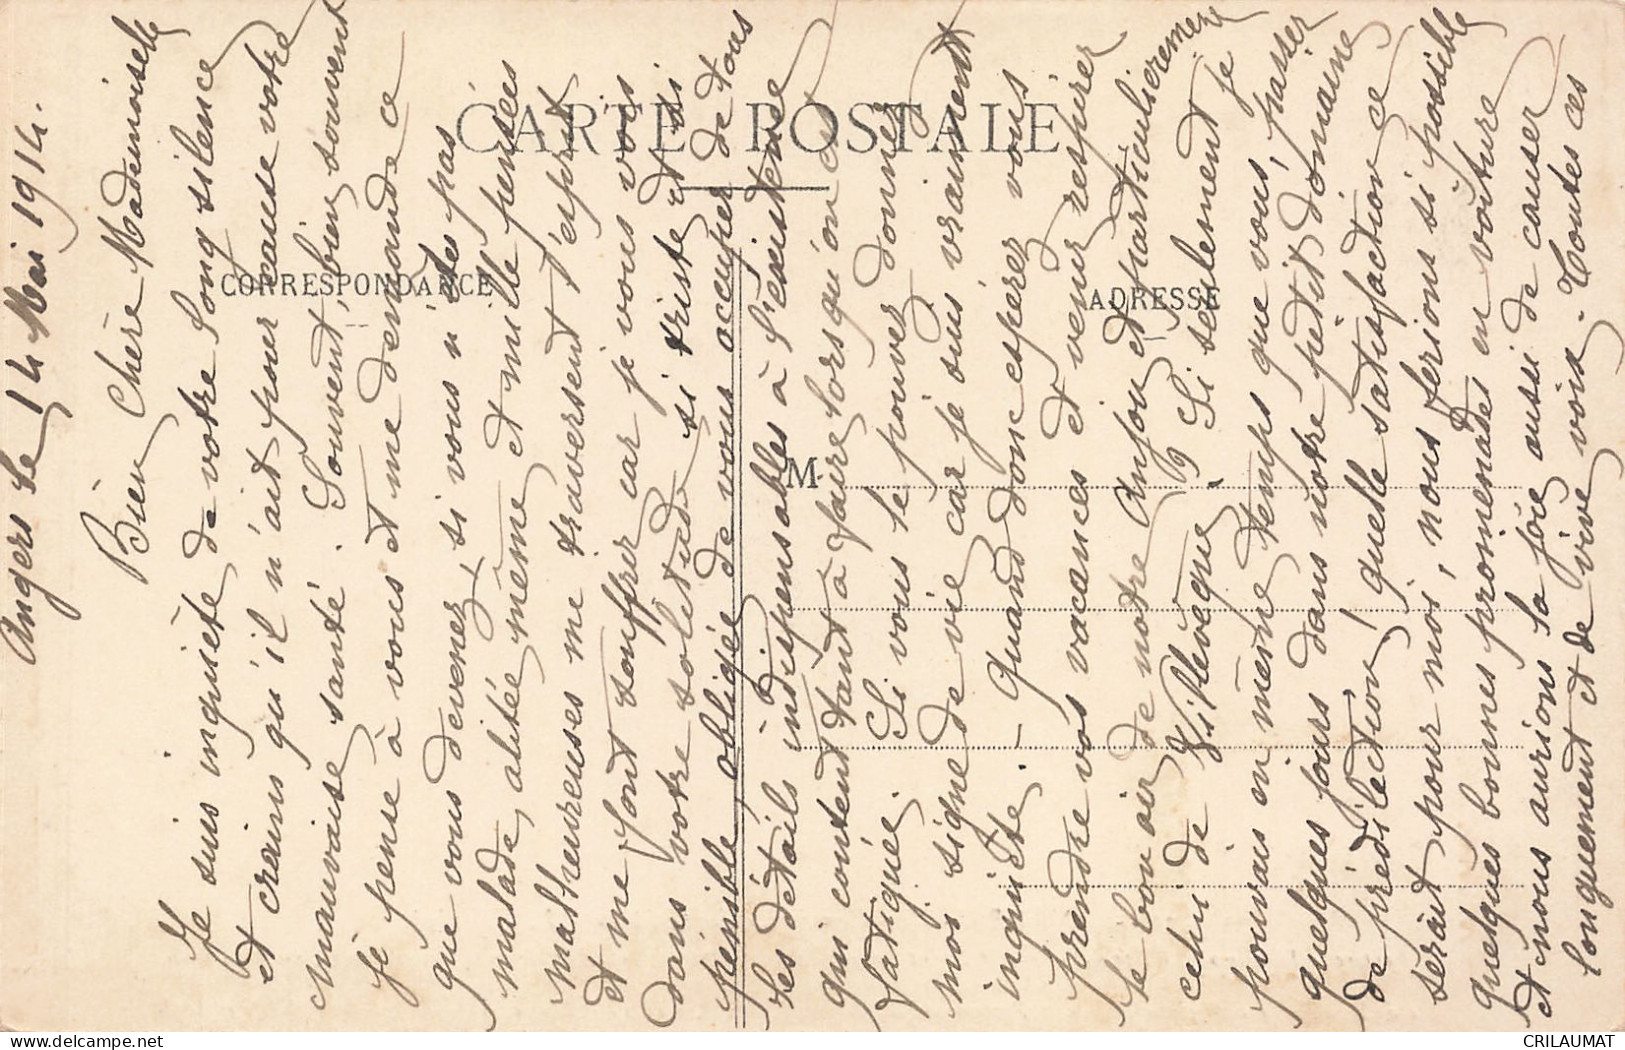 CARTE POSTALE
CORRESPONDANCE
ADRESSE
M
Angers le 14 Mai 1914.
Bien Chère Mademoiselle
Je suis inquiète de votre long silence
et crains qu'il n'ait pour cause votre
mauvaise santé. Souvent, bien souvent
je pense à vous et me demande ce
que vous devenez, si vous n'êtes pas
malade, alitée même et mille pensées
malheureuses me traversent l'esprit
et me font souffrir car je vous vois
dans votre solitude si triste et si
pénible, obligée de vous occuper de tous
les détails indispensables à l'existence
qui coutent tant à faire lorsqu'on est
fatiguée. Si vous le pouvez donnez
moi signe de vie car je suis vraiment
inquiète. - Quand donc espérez vous
prendre vos vacances et venir respirer
le bon air de notre Anjou et particulièrement
celui de Villevêque? Si seulement je
pouvais en même temps que vous, passer
quelques jours dans notre petit domaine
de prédilection, quelle satisfaction ce
serait pour moi, nous ferions si possible
quelques bonnes promenades en voiture
et nous aurions la joie aussi de causer
longuement et de vive voix. Toutes ces
CRILAUMAT